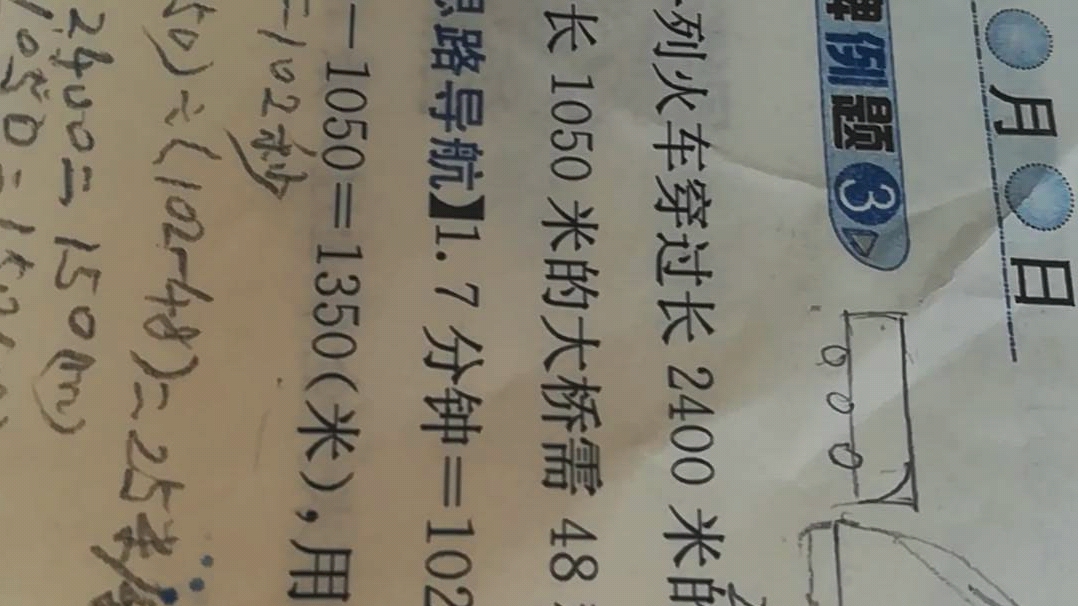 月 日
牌例题3
列火车穿过长 2400 米的
长 1050 米的大桥需 48
思路导航】1.7 分钟=102
-1050=1350(米),用
=102秒
50)÷(102-48)=25米/
2400=150(m)
1050=